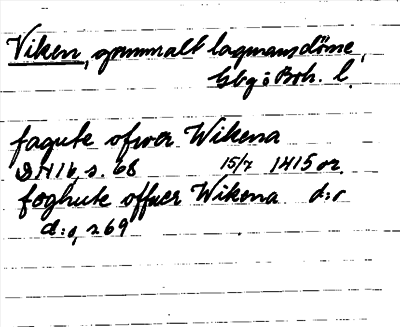 Viken, gammalt lagmansdöme,
Gbg o Boh. l.
fagute ofwer Wikena
DN 16, s. 68 15/7 1415 or.
foghute offuer Wikena d:o
d:o, s 69